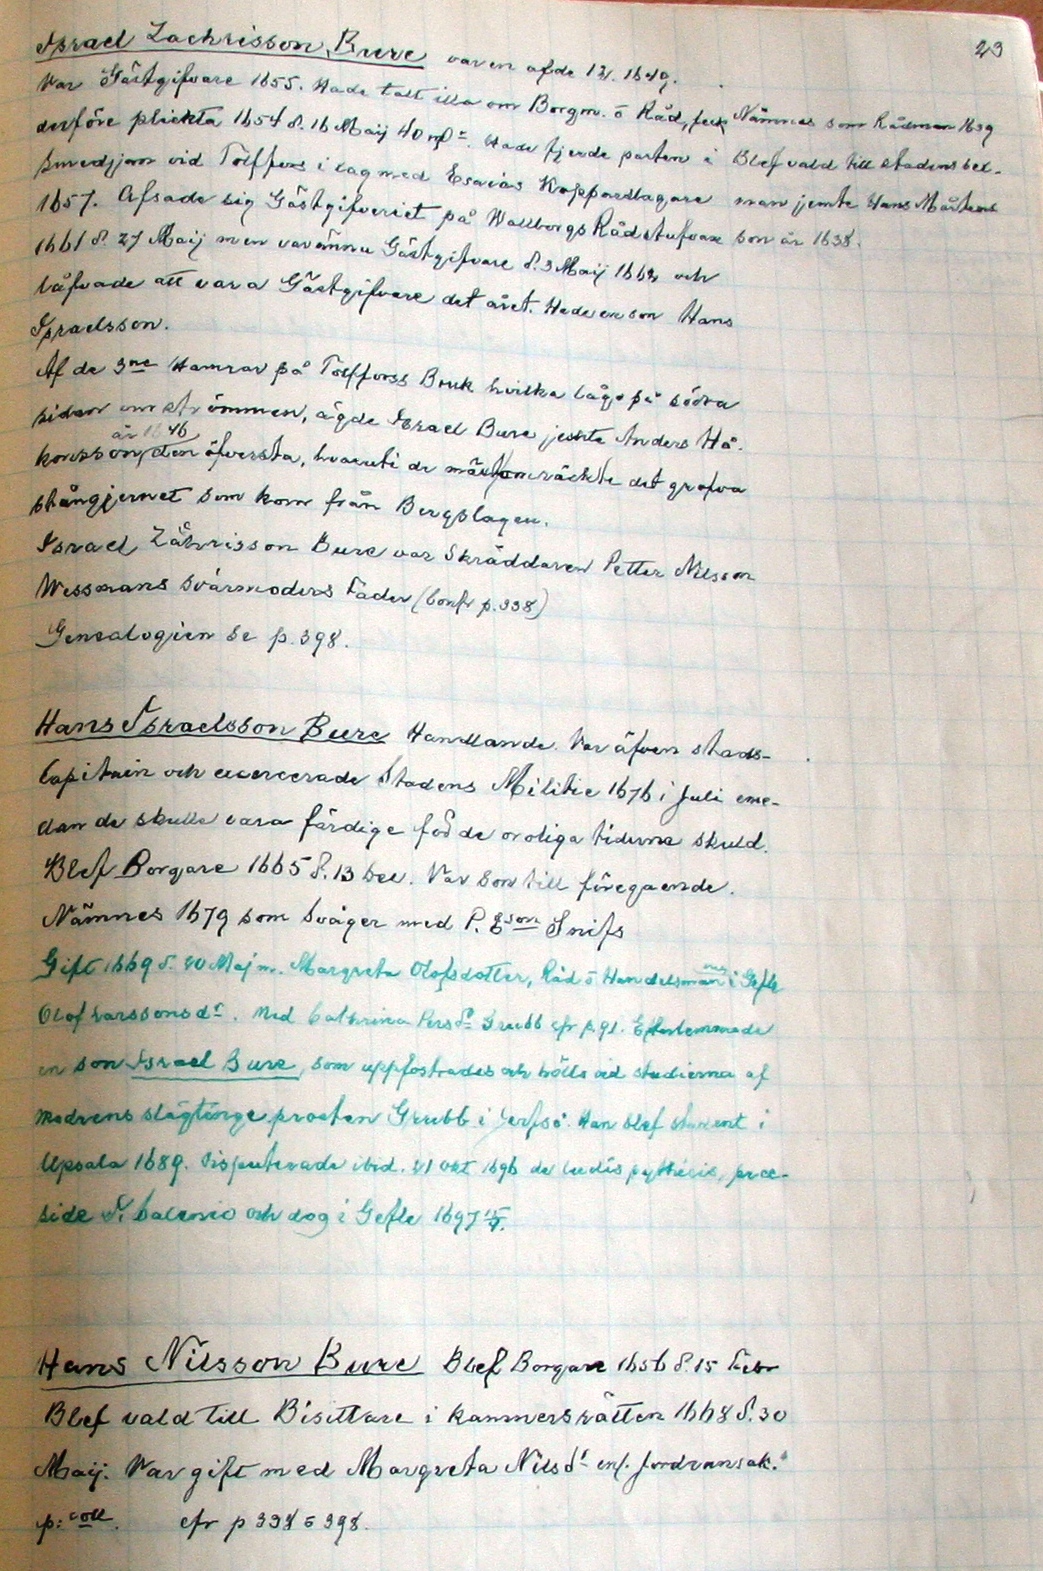 23
Israel Zachrisson Bure var en af de 12. 1649.
Var Gästgifvare 1655. Hade talt illa om Borgm. o Råd, feck
derföre plickta 1654 d. 16 Maij 40 mƿr. Hade fjerde parten i
smedjan vid Tolffors i lag med Esaias Koppardlagare
1657. Afsade sig Gästgifveriet på Wallborgs Rådstufvan
1661 d. 27 Maij men var ännu Gästgifvare d. 3 Maij 1662 och
låfvade att vara Gästgifvare det året. Hade en son Hans
Israelsson.
Nämnes som Rådman 1639
Blef vald till stadens bel-
man jemte Hans Mårtens
son år 1638.
Af de 3ne Hamrar på Tolfforss Bruk hvilka lågo på södra
sidan om strömmen, ägde Israel Bure jemte Anders Hå-
år 1646
konsson, den öfversta, hvaruti de mäst omräckte det grofva
stångjernet som kom från Bergslagen.
Israel Zachrisson Bure var Skräddaren Petter Nilsson
Wessmans svärmoders Fader (Confr p. 338)
Genealogien se p. 398.
Hans Israelsson Bure Handlande. Var äfven stads-
Capitain och excercerade Stadens Militie 1676 i Juli eme-
dan de skulle vara färdige för de oroliga tiderna skuld.
Blef Borgare 1665 d. 13 Dec. Var Son till föregaende.
Nämnes 1679 som Svåger med P. Eson Snifs
Gift 1669 d. 20 Maj m. Margreta Olofsdotter, Råd o Handelsman i Gefle
Olof Larssons dr. Med Cathrina Pers dr Grubb cfr p. 91. Efterlemnade
en son Israel Bure, som uppfostrades och hölls vid studierna af
modrens slägtinge prosten Grubb i Jerfsö. Han blef student i
Upsala 1689. Disputerade ibid. 21 okt 1696 de ludis pythicis, præ-
side d. Calenio och dog i Gefle 1697 15/7.
Hans Nilsson Bure Blef Borgare 1656 d. 15 Febr
Blef vald till Bisittare i kamnersrätten 1668 d. 30
Maij. Var gift med Margreta Nils dr enl. Jordransak.
p: coll. cfr p 338 o 398.